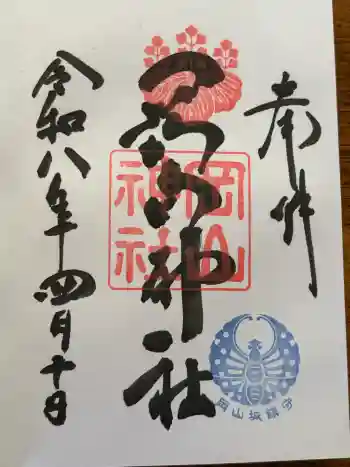 奉拝
岡山神社
令和八年四月十日
岡山
神社
岡山城鎮守